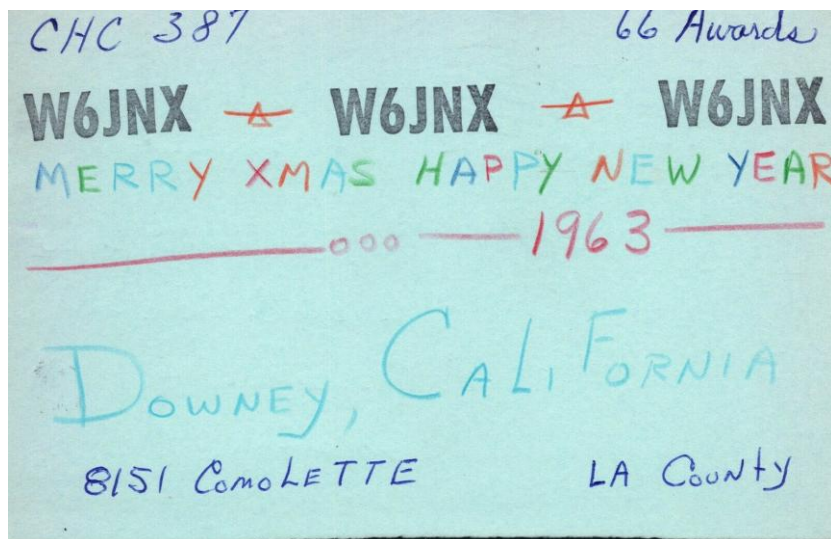 CHC 387 66 Awards
W6JNX W6JNX W6JNX
MERRY XMAS HAPPY NEW YEAR
1963
DOWNEY, CALIFORNIA
8151 COMOLETTE LA COUNTY